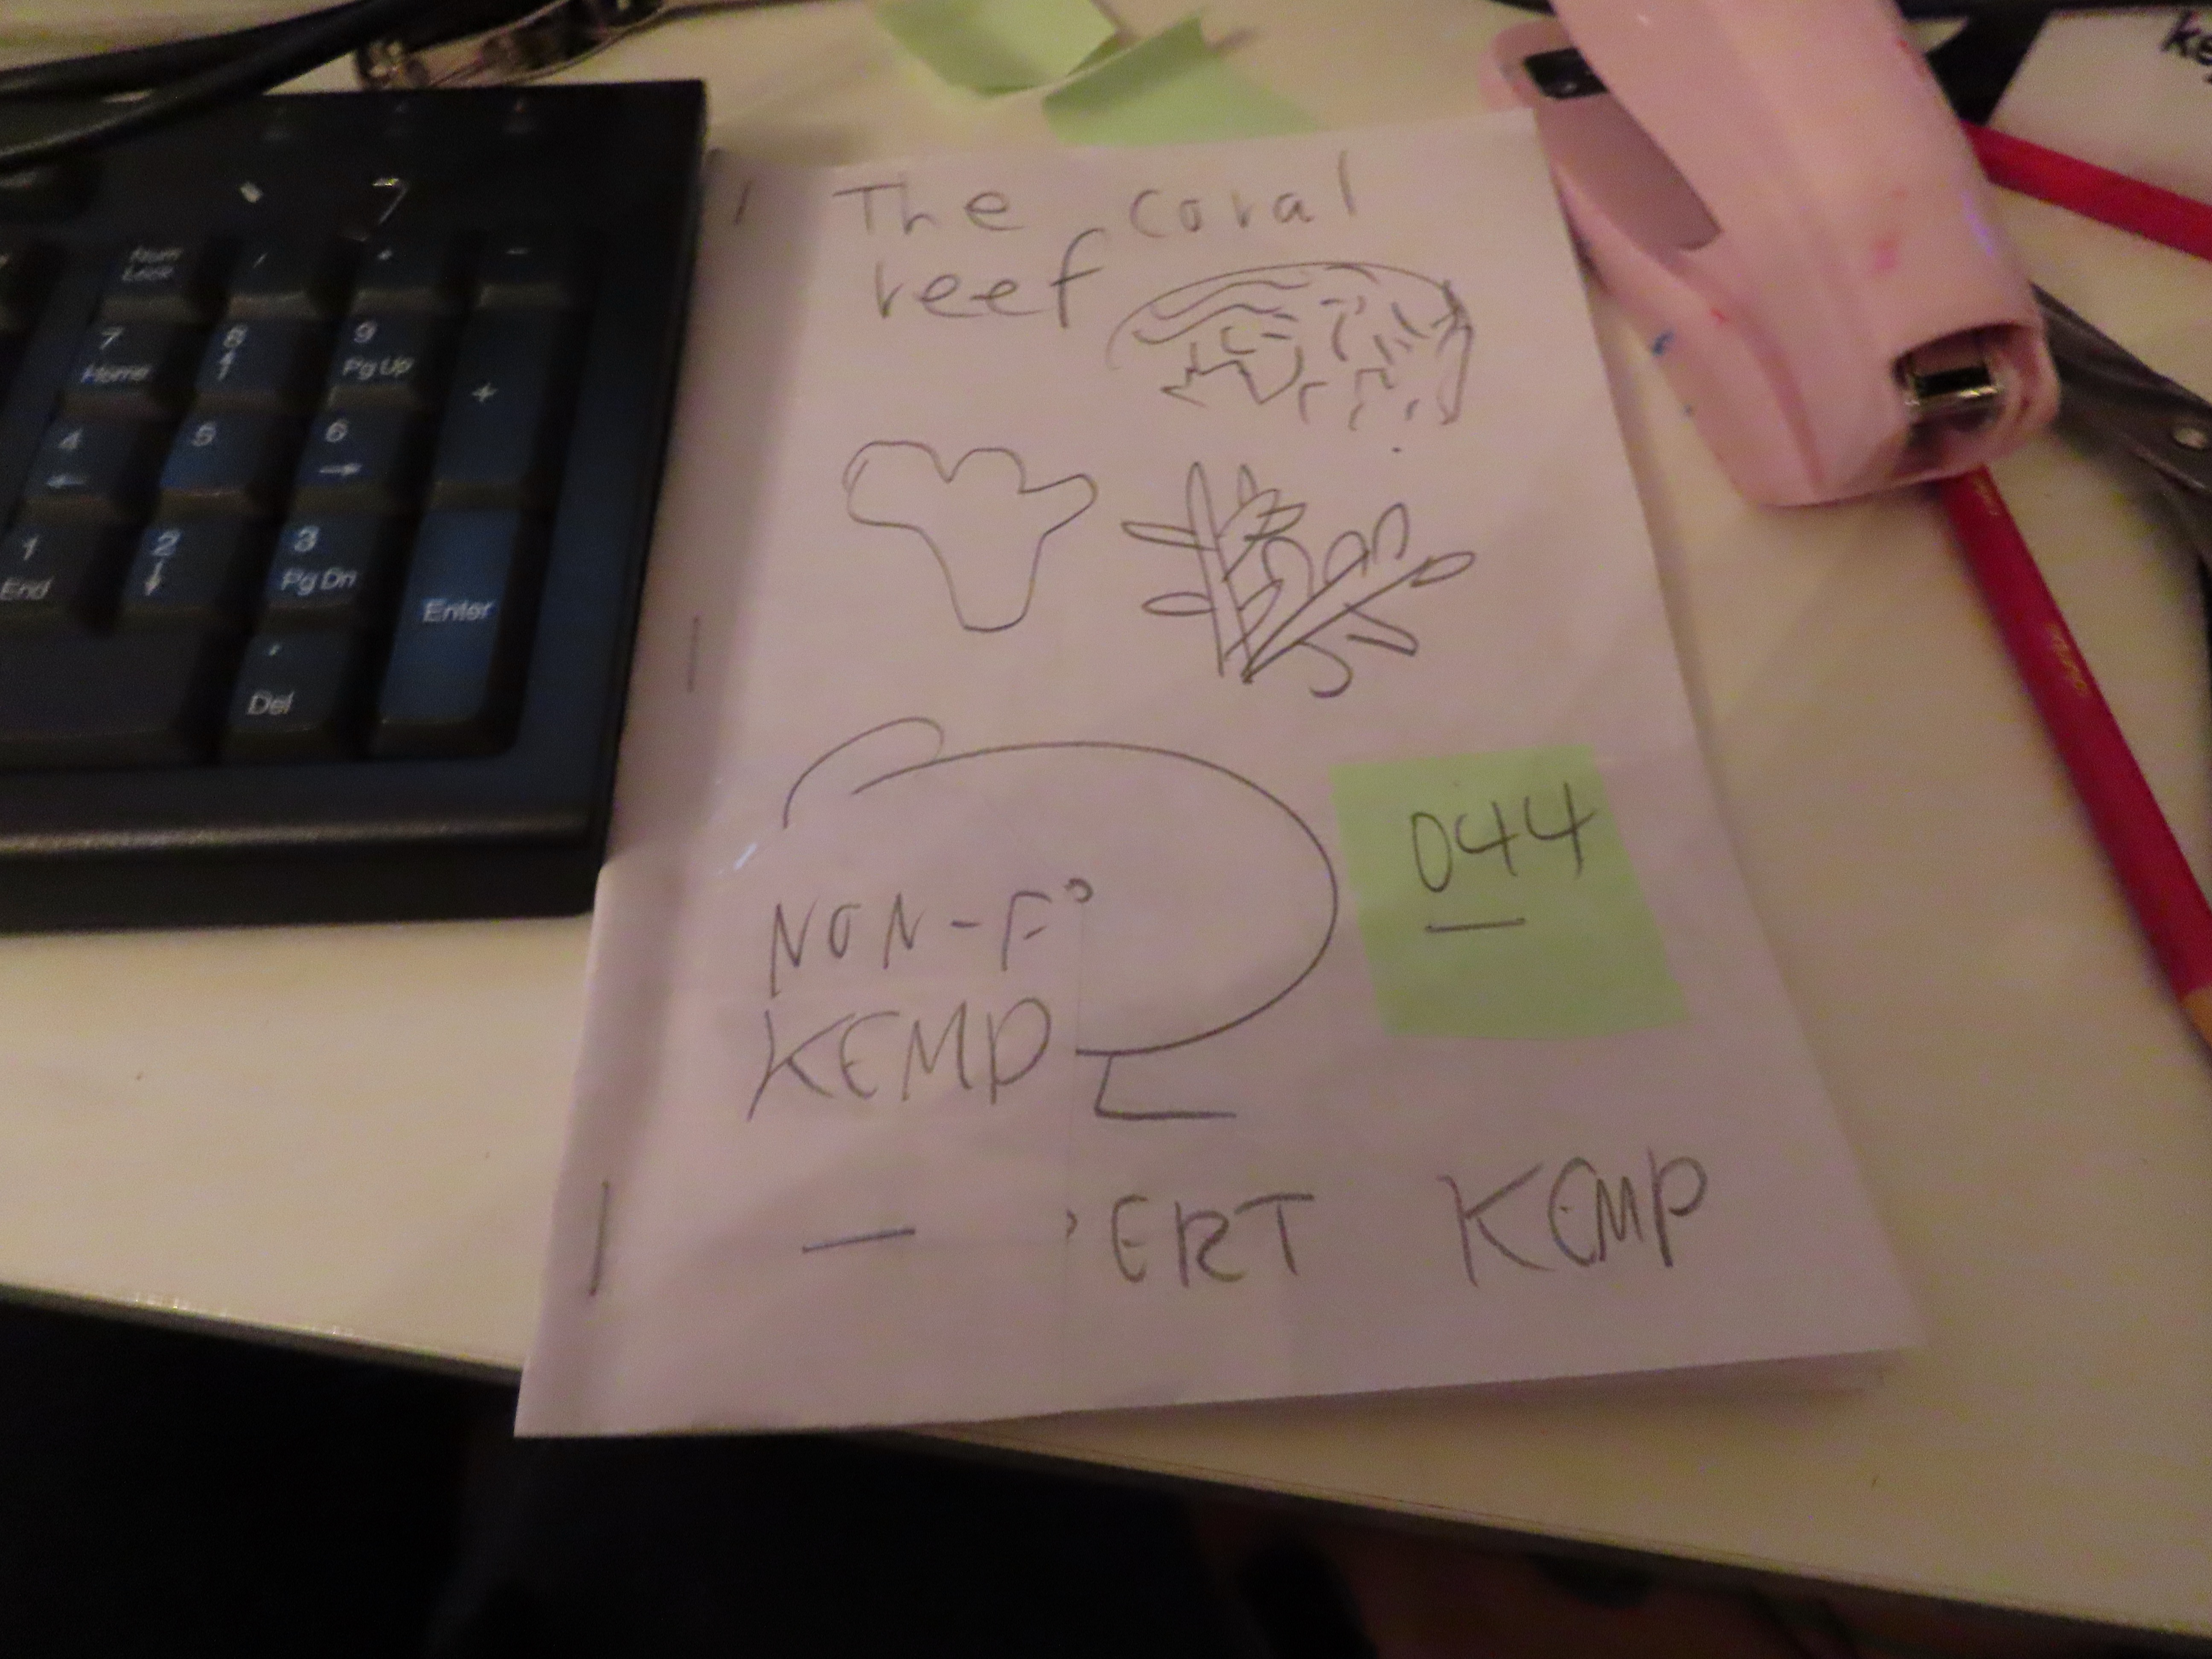 The coral
reef
044
NON-F
KEMP
ERT KEMP
Num
Lock
7
Home
8
9
Pg Up
+
4
5
6
1
End
2
3
Pg Dn
Enter
Del